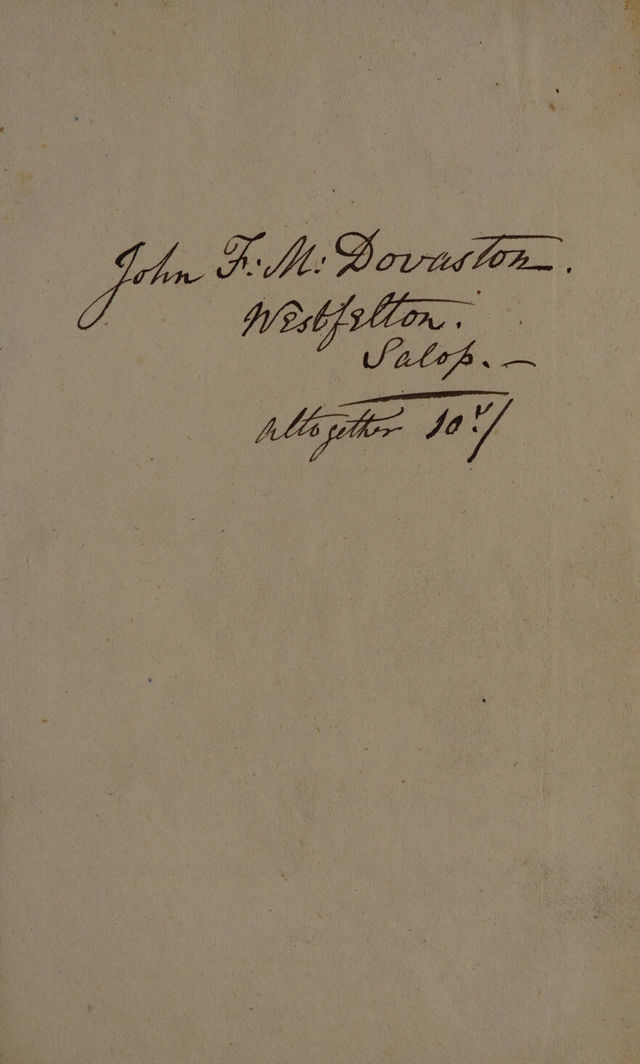 John F: M: Dovaston.
Westfelton.
Salop. —
altogether 10